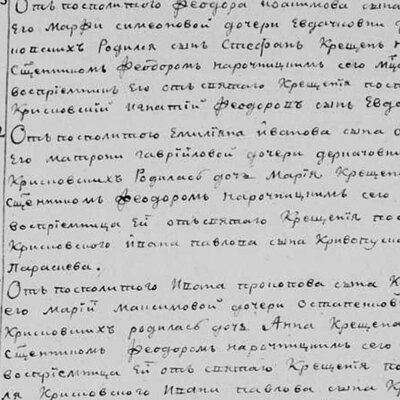 Отъ посполитого Феодора Иоакимова сына
Его Марфи симеоновой дочери Евдочковни
новскихъ Родился сынъ Стефанъ Крещенъ
Сщенникомъ Феодоромъ нарочицкимъ сего
воспріемникъ Его отъ святаго Крещенія пос
Крисновскій Игнатій Феодоровъ сынъ Евдо
Отъ посполитого Емиліяна Иванова сына
Его матрони гавріиловой дочери дерначовни
Крисновскихъ Родилась дочь Марія Крещена
Сщенникомъ Феодоромъ нарочицкимъ сего
воспріемница Ей отъ святаго Крещенія пос
Крисновского Ивана павлова сына Кривопуск
Параскева.
Отъ посполитого Ивана прокопова сына К
его Маріи Максимовой дочери Остапенков
Крисновскихъ родилась дочь Анна Крещена
Сщенникомъ Феодоромъ нарочицкимъ сего
воспріемница Ей отъ святаго Крещенія по
ля Крисновского Ивана павлова сына К